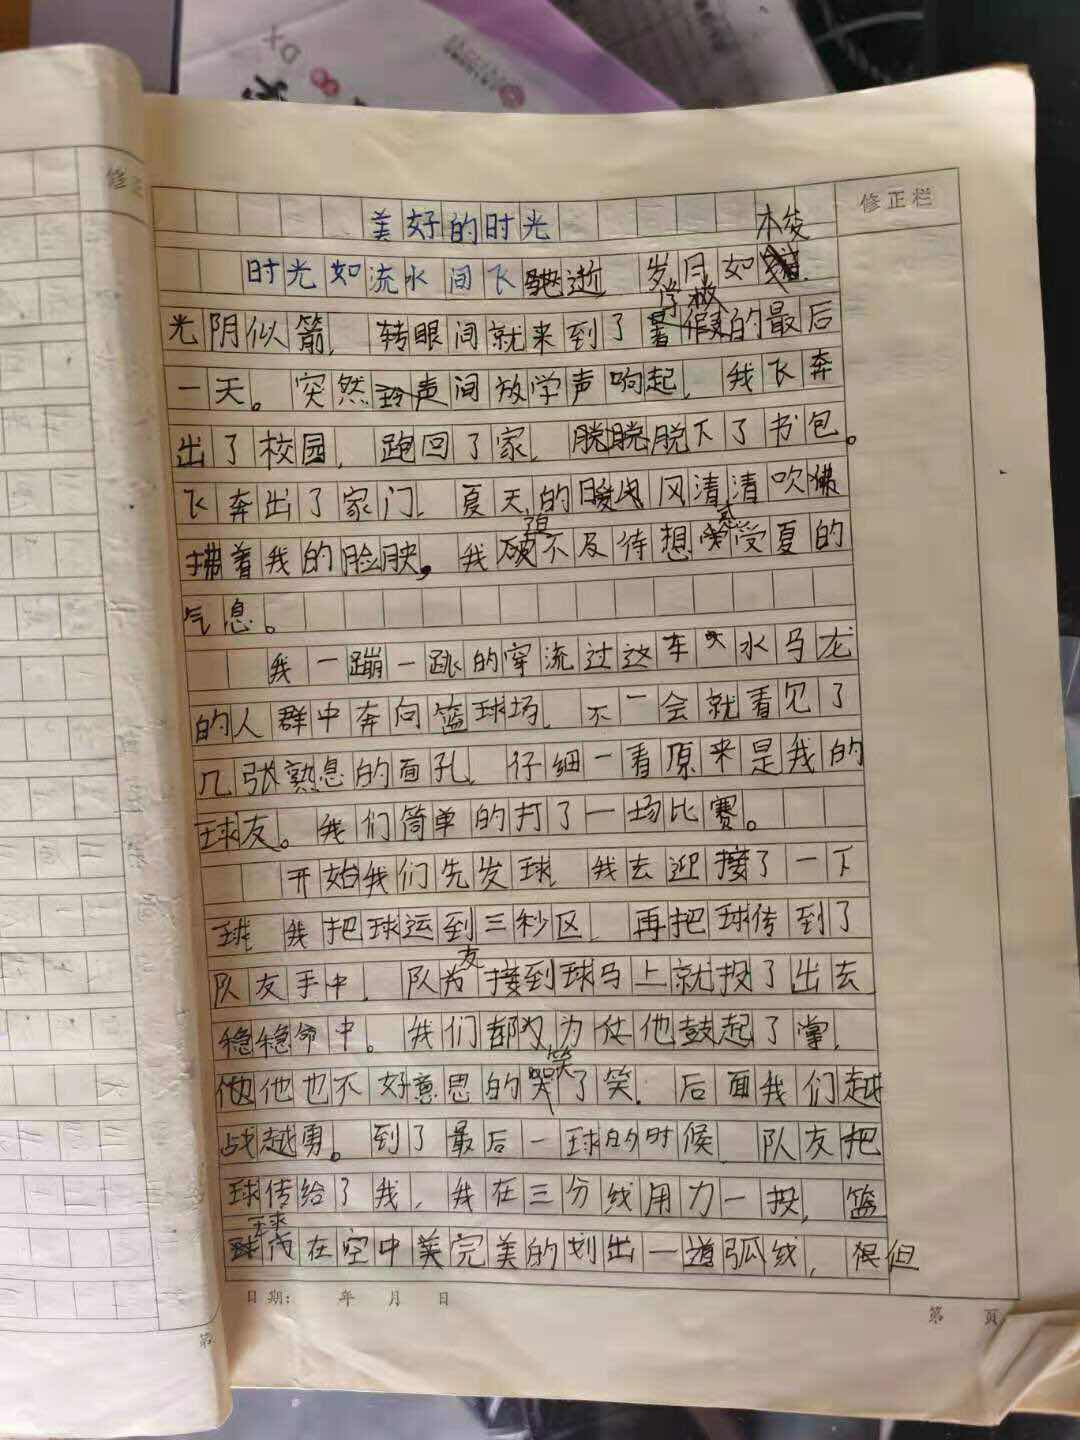 修正栏
美好的时光
时光如流水间飞驰逝，岁月如梭
光阴似箭，转眼间就来到了学校的最后
一天。突然间放学声响起，我飞奔
出了校园，跑回了家，脱下了书包。
飞奔出了家门，夏天的暖风清清吹拂
拂着我的脸映，我迫不及待想享受夏的
气息。
我一蹦一跳的穿流过这车水马龙
的人群中奔向篮球场，不一会就看见了
几张熟息的面孔，仔细一看原来是我的
球友。我们简单的打了一场比赛。
开始我们先发球，我去迎接了一下
球，我把球运到三秒区，再把球传到了
队友手中，队友接到球马上就投了出去
稳稳命中。我们都为他鼓起了掌，
他也不好意思的笑了笑，后面我们越
战越勇。到了最后一球的时候，队友把
球传给了我，我在三分线用力一投，篮
球在空中完美的划出一道弧线，但
日期： 年 月 日
第 页